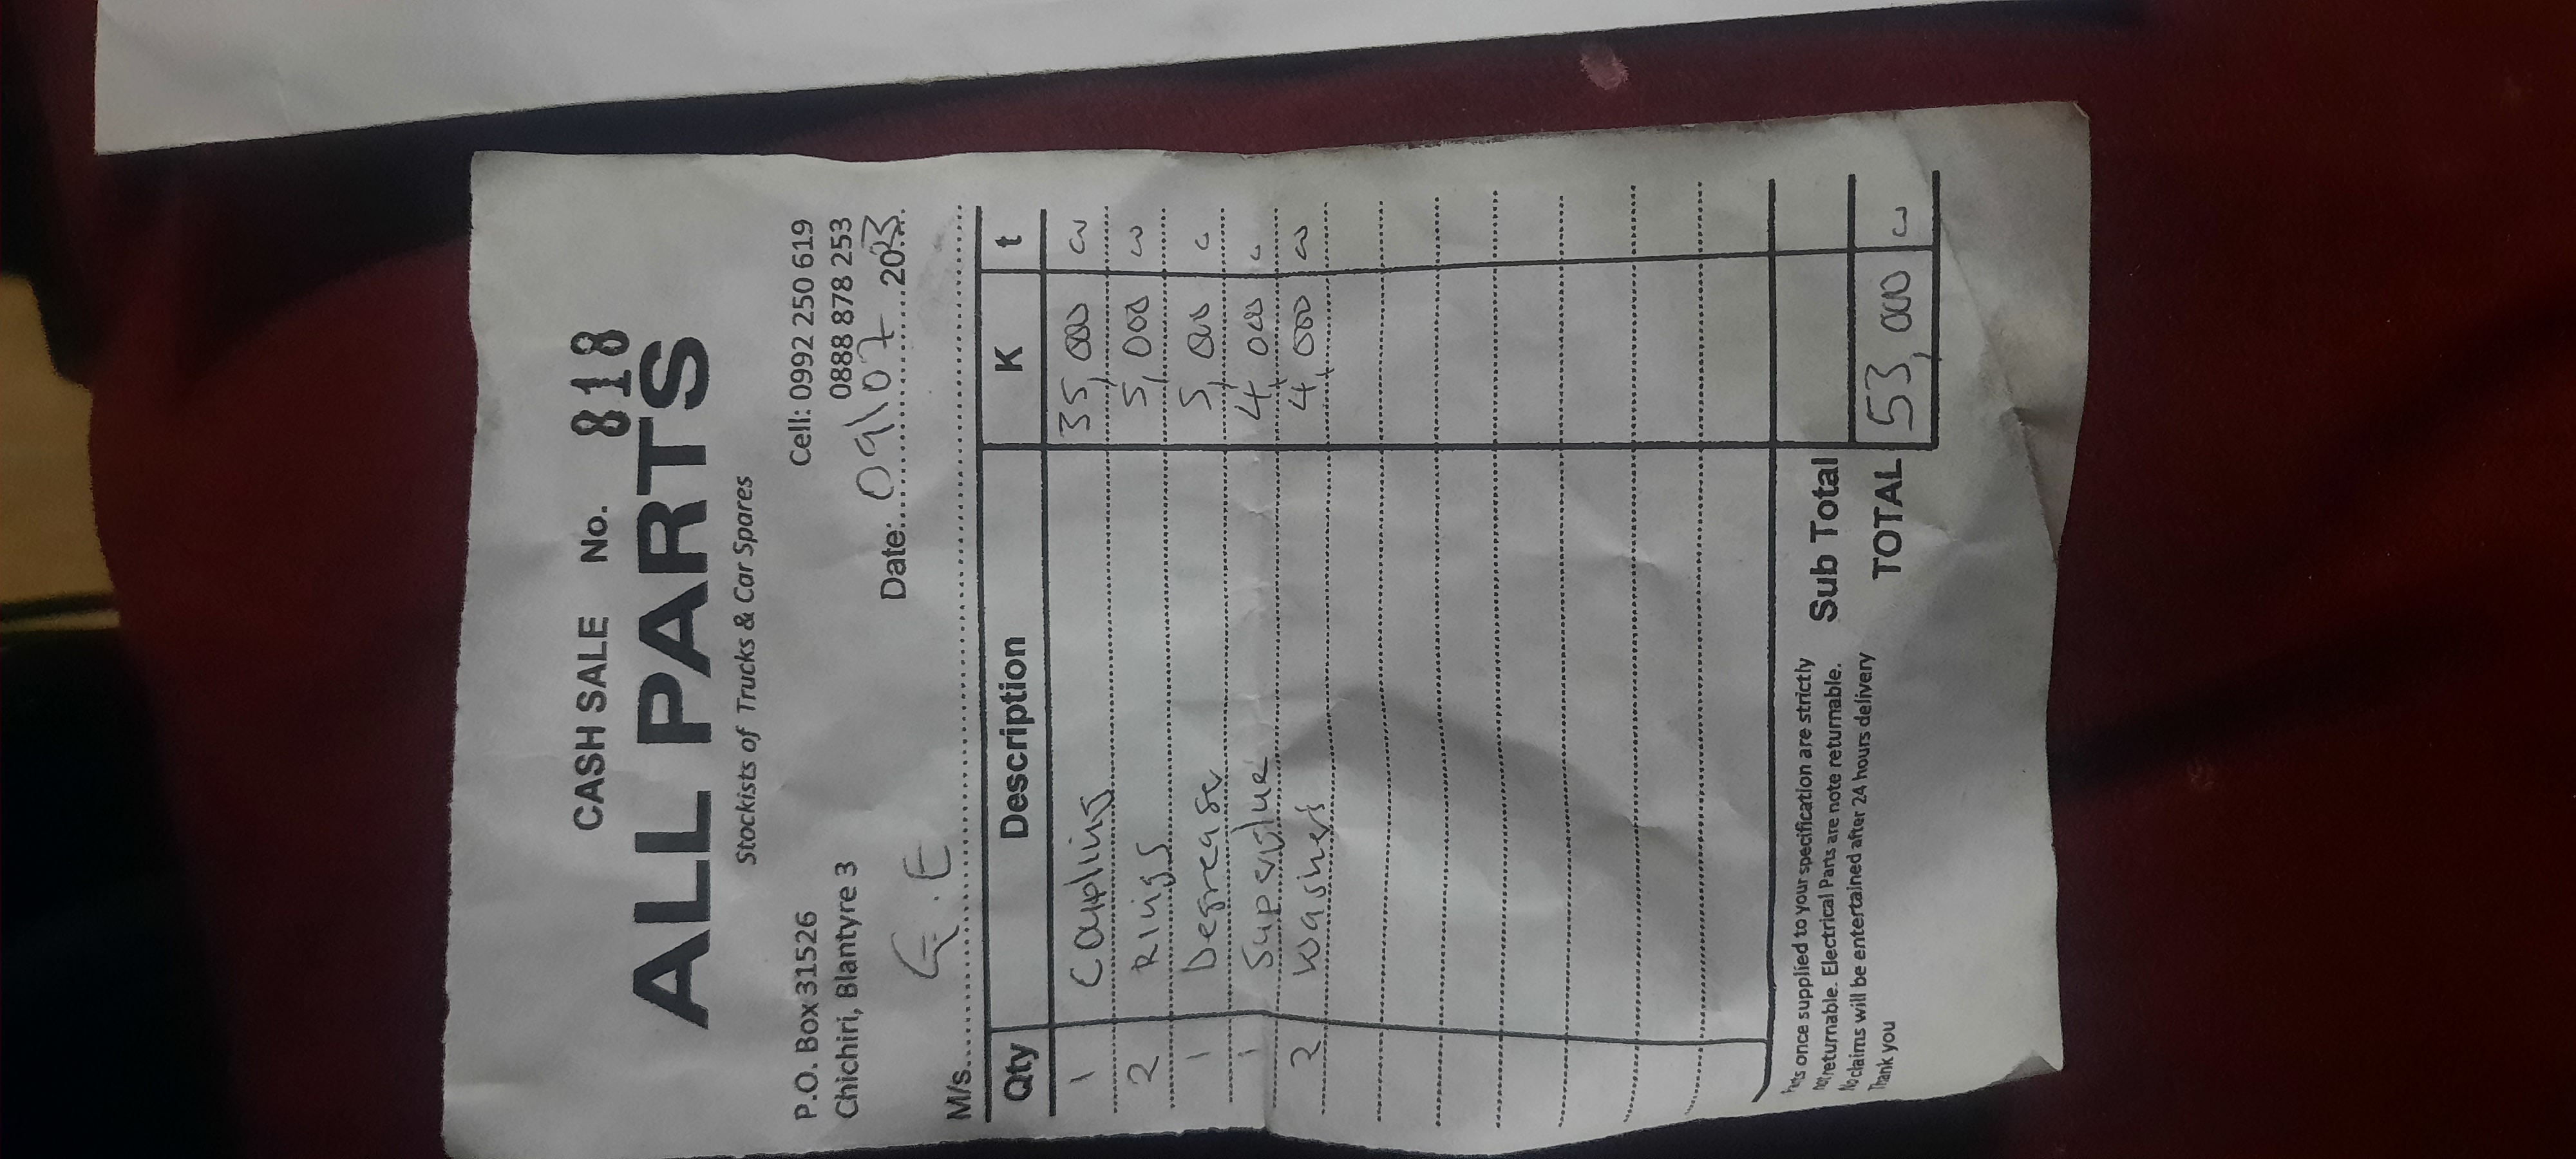 CASH SALE No. 818
ALL PARTS
Stockists of Trucks & Car Spares
P.O. Box 31526 Cell: 0992 250 619
Chichiri, Blantyre 3 0888 878 253
Date: 09\07 2023
M/s G.E
Qty Description K t
1 Coupling 35,000 00
2 Rings 5,000 00
1 Degreaser 5,000
1 Superglue 4,000
2 Washers 4,000 00
Parts once supplied to your specification are strictly
not returnable. Electrical Parts are note returnable.
No claims will be entertained after 24 hours delivery
Thank you
Sub Total
TOTAL 53,000 00